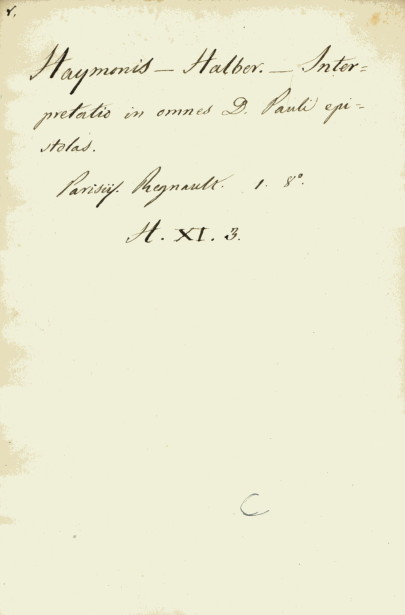 r.
Haymonis — Halber. — Inter=
pretatio in omnes D. Pauli epi=
stolas.
Parisiis. Regnault. 1. 8°.
H. XI. 3.
C